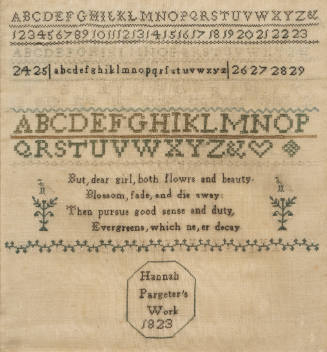 ABCDEFGHIKLKJMNOPQRSTUVWXYZ&
1234567891011121314151617181920212223
2425|abcdefghiklmnopqrſstuvwxyz|26272829
ABCDEFGHIKLMNOP
QRSTUVWXYZ&
But, dear girl, both flowrs and beauty.
Blossom, fade, and die away:
Then pursue good sense and duty,
Evergreens, which ne,er decay
Hannah
Pargeter's
Work
1823